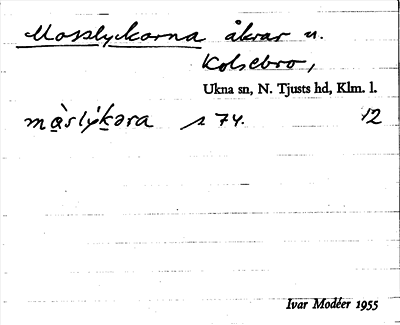 Mosslyckorna åkrar u.
Kolsebro,
Ukna sn, N. Tjusts hd, Klm. l.
mɑ̀slýkəra s 74. 12
Ivar Modéer 1955